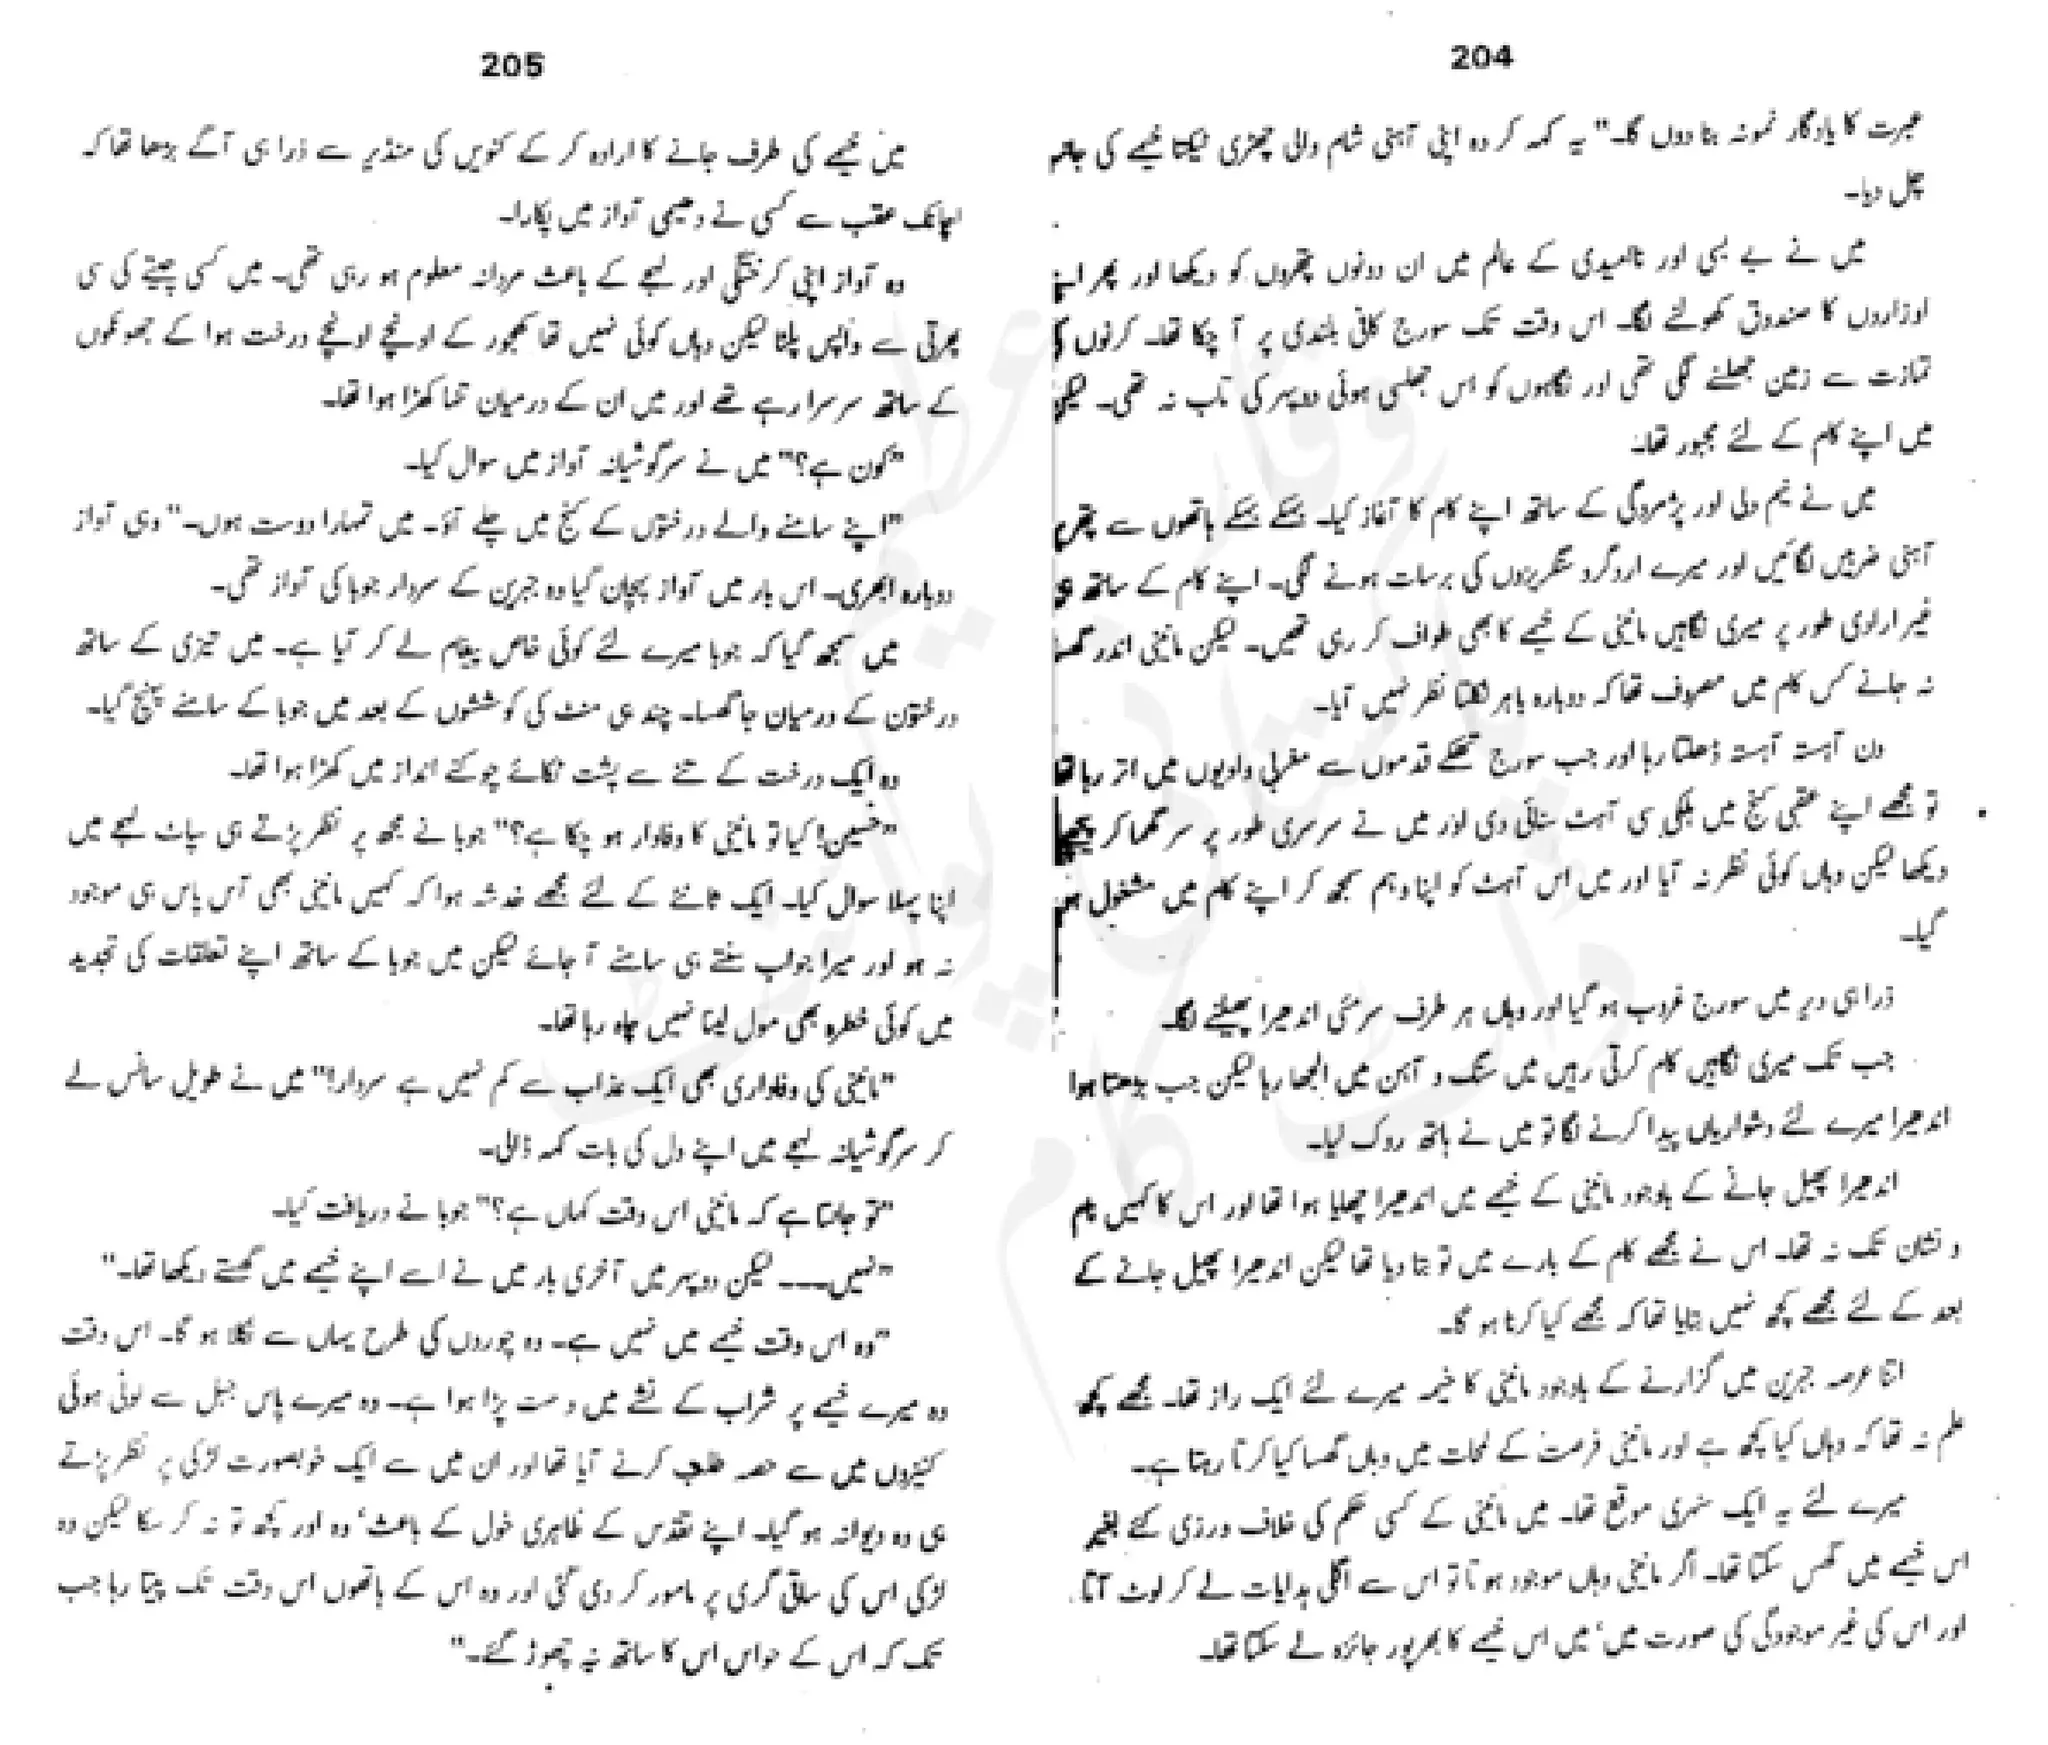 204
عبرت کا یادگار نمونہ بنا دوں گا۔" یہ کہہ کر وہ اپنی آہنی شام والی چھڑی ٹیکتا خیمے کی جانب
چل دیا۔
میں نے بے بسی اور ناامیدی کے عالم میں ان دونوں پتھروں کو دیکھا اور پھر اپنے
اوزاروں کا صندوق کھولنے لگا۔ اس وقت تک سورج کافی بلندی پر آ چکا تھا۔ کرنوں کی
تمازت سے زمین جھلسنے لگی تھی اور نگاہوں کو اس جھلسی ہوئی دوپہر کی تاب نہ تھی۔ لیکن
میں اپنے کام کے لئے مجبور تھا۔
میں نے نیم دلی اور پژمردگی کے ساتھ اپنے کام کا آغاز کیا۔ ہلکے ہلکے ہاتھوں سے پتھر پر
آہنی ضربیں لگائیں اور میرے اردگرد سنگریزوں کی برسات ہونے لگی۔ اپنے کام کے ساتھ
غیر ارادی طور پر میری نگاہیں مانیٹی کے خیمے کا بھی طواف کر رہی تھیں۔ لیکن مانیٹی اندر گھسا
نہ جانے کس کام میں مصروف تھا کہ دوبارہ باہر نکلتا نظر نہیں آیا۔
دن آہستہ آہستہ ڈھلتا رہا اور جب سورج تھکے قدموں سے مغربی وادیوں میں اتر رہا تھا
تو مجھے اپنے عقبی کنج میں ہلکی سی آہٹ سنائی دی اور میں نے سرسری طور پر سر گھما کر پیچھے
دیکھا لیکن وہاں کوئی نظر نہ آیا اور میں اس آہٹ کو اپنا وہم سمجھ کر اپنے کام میں مشغول ہو
گیا۔
ذرا ہی دیر میں سورج غروب ہو گیا اور وہاں ہر طرف سرمئی اندھیرا پھیلنے لگا۔
جب تک میری نگاہیں کام کرتی رہیں میں سنگ و آہن میں الجھا رہا لیکن جب بڑھتا ہوا
اندھیرا میرے لئے دشواریاں پیدا کرنے لگا تو میں نے ہاتھ روک لیا۔
اندھیرا پھیل جانے کے باوجود مانیٹی کے خیمے میں اندھیرا چھایا ہوا تھا اور اس کا کہیں نام
و نشان تک نہ تھا۔ اس نے مجھے کام کے بارے میں تو بتا دیا تھا لیکن اندھیرا پھیل جانے کے
بعد کے لئے مجھے کچھ نہیں بتایا تھا کہ مجھے کیا کرنا ہو گا۔
اتنا عرصہ جبرین میں گزارنے کے باوجود مانیٹی کا خیمہ میرے لئے ایک راز تھا۔ مجھے کچھ
علم نہ تھا کہ وہاں کیا کچھ ہے اور مانیٹی فرصت کے لمحات میں وہاں گھسا کیا کرتا رہتا ہے۔
میرے لئے یہ ایک سنہری موقع تھا۔ میں مانیٹی کے کسی حکم کی خلاف ورزی کئے بغیر
اس خیمے میں گھس سکتا تھا۔ اگر مانیٹی وہاں موجود ہوتا تو اس سے اگلی ہدایات لے کر لوٹ آتا
اور اس کی غیر موجودگی کی صورت میں' میں اس خیمے کا بھرپور جائزہ لے سکتا تھا۔
205
میں خیمے کی طرف جانے کا ارادہ کر کے کنویں کی منڈیر سے ذرا ہی آگے بڑھا تھا کہ
اچانک عقب سے کسی نے دھیمی آواز میں پکارا۔
وہ آواز اپنی کرختگی اور لہجے کے باعث مردانہ معلوم ہو رہی تھی۔ میں کسی چیتے کی سی
پھرتی سے واپس پلٹا لیکن وہاں کوئی نہیں تھا کھجور کے اونچے اونچے درخت ہوا کے جھونکوں
کے ساتھ سرسرا رہے تھے اور میں ان کے درمیان تنہا کھڑا ہوا تھا۔
"کون ہے؟" میں نے سرگوشیانہ آواز میں سوال کیا۔
"اپنے سامنے والے درختوں کے کنج میں چلے آؤ۔ میں تمہارا دوست ہوں۔" وہی آواز
دوبارہ ابھری۔ اس بار میں آواز پہچان گیا وہ جبرین کے سردار جوبا کی آواز تھی۔
میں سمجھ گیا کہ جوبا میرے لئے کوئی خاص پیغام لے کر آیا ہے۔ میں تیزی کے ساتھ
درختوں کے درمیان جا گھسا۔ چند ہی منٹ کی کوششوں کے بعد میں جوبا کے سامنے پہنچ گیا۔
وہ ایک درخت کے تنے سے پشت ٹکائے چوکنے انداز میں کھڑا ہوا تھا۔
"ضیمن! کیا تو مانیٹی کا وفادار ہو چکا ہے؟" جوبا نے مجھ پر نظر پڑتے ہی سپاٹ لہجے میں
اپنا پہلا سوال کیا۔ ایک ثانئے کے لئے مجھے خدشہ ہوا کہ کہیں مانیٹی بھی آس پاس ہی موجود
نہ ہو اور میرا جواب سنتے ہی سامنے آ جائے لیکن میں جوبا کے ساتھ اپنے تعلقات کی تجدید
میں کوئی خطرہ بھی مول لینا نہیں چاہ رہا تھا۔
"مانیٹی کی وفاداری بھی ایک عذاب سے کم نہیں ہے سردار!" میں نے طویل سانس لے
کر سرگوشیانہ لہجے میں اپنے دل کی بات کہہ ڈالی۔
"تو جانتا ہے کہ مانیٹی اس وقت کہاں ہے؟" جوبا نے دریافت کیا۔
"نہیں۔۔۔۔ لیکن دوپہر میں آخری بار میں نے اسے اپنے خیمے میں گھستے دیکھا تھا۔"
"وہ اس وقت خیمے میں نہیں ہے۔ وہ چوروں کی طرح یہاں سے نکلا ہو گا۔ اس وقت
وہ میرے خیمے پر شراب کے نشے میں دھت پڑا ہوا ہے۔ وہ میرے پاس جبل سے لوٹی ہوئی
کنیزوں میں سے حصہ طلب کرنے آیا تھا اور ان میں سے ایک خوبصورت لڑکی پر نظر پڑتے
ہی وہ دیوانہ ہو گیا۔ اپنے تقدس کے ظاہری خول کے باعث' وہ اور کچھ تو نہ کر سکا لیکن وہ
لڑکی اس کی ساقی گری پر مامور کر دی گئی اور وہ اس کے ہاتھوں اس وقت تک پیتا رہا جب
تک کہ اس کے حواس اس کا ساتھ نہ چھوڑ گئے۔"